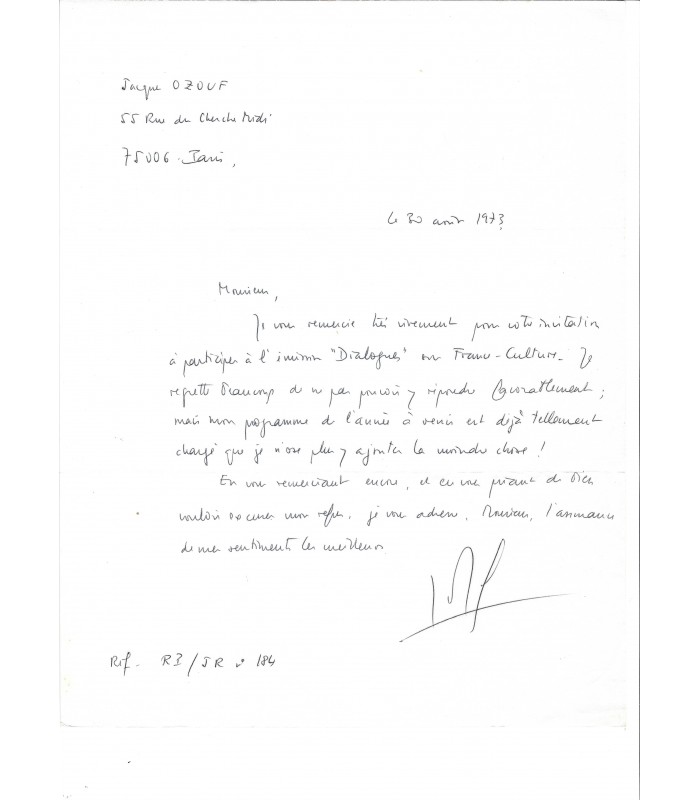 Jacques OZOUF
55 Rue du Cherche Midi
75006. Paris,
le 30 août 1973
Monsieur,
Je vous remercie très vivement pour votre invitation
à participer à l'émission "Dialogues" sur France-Culture. Je
regrette beaucoup de ne pas pouvoir y répondre favorablement ;
mais mon programme de l'année à venir est déjà tellement
chargé que je n'ose plus y ajouter la moindre chose !
En vous remerciant encore, et en vous priant de bien
vouloir excuser mon refus, je vous adresse, Monsieur, l'assurance
de mes sentiments les meilleurs
Réf. RB/JR n° 184